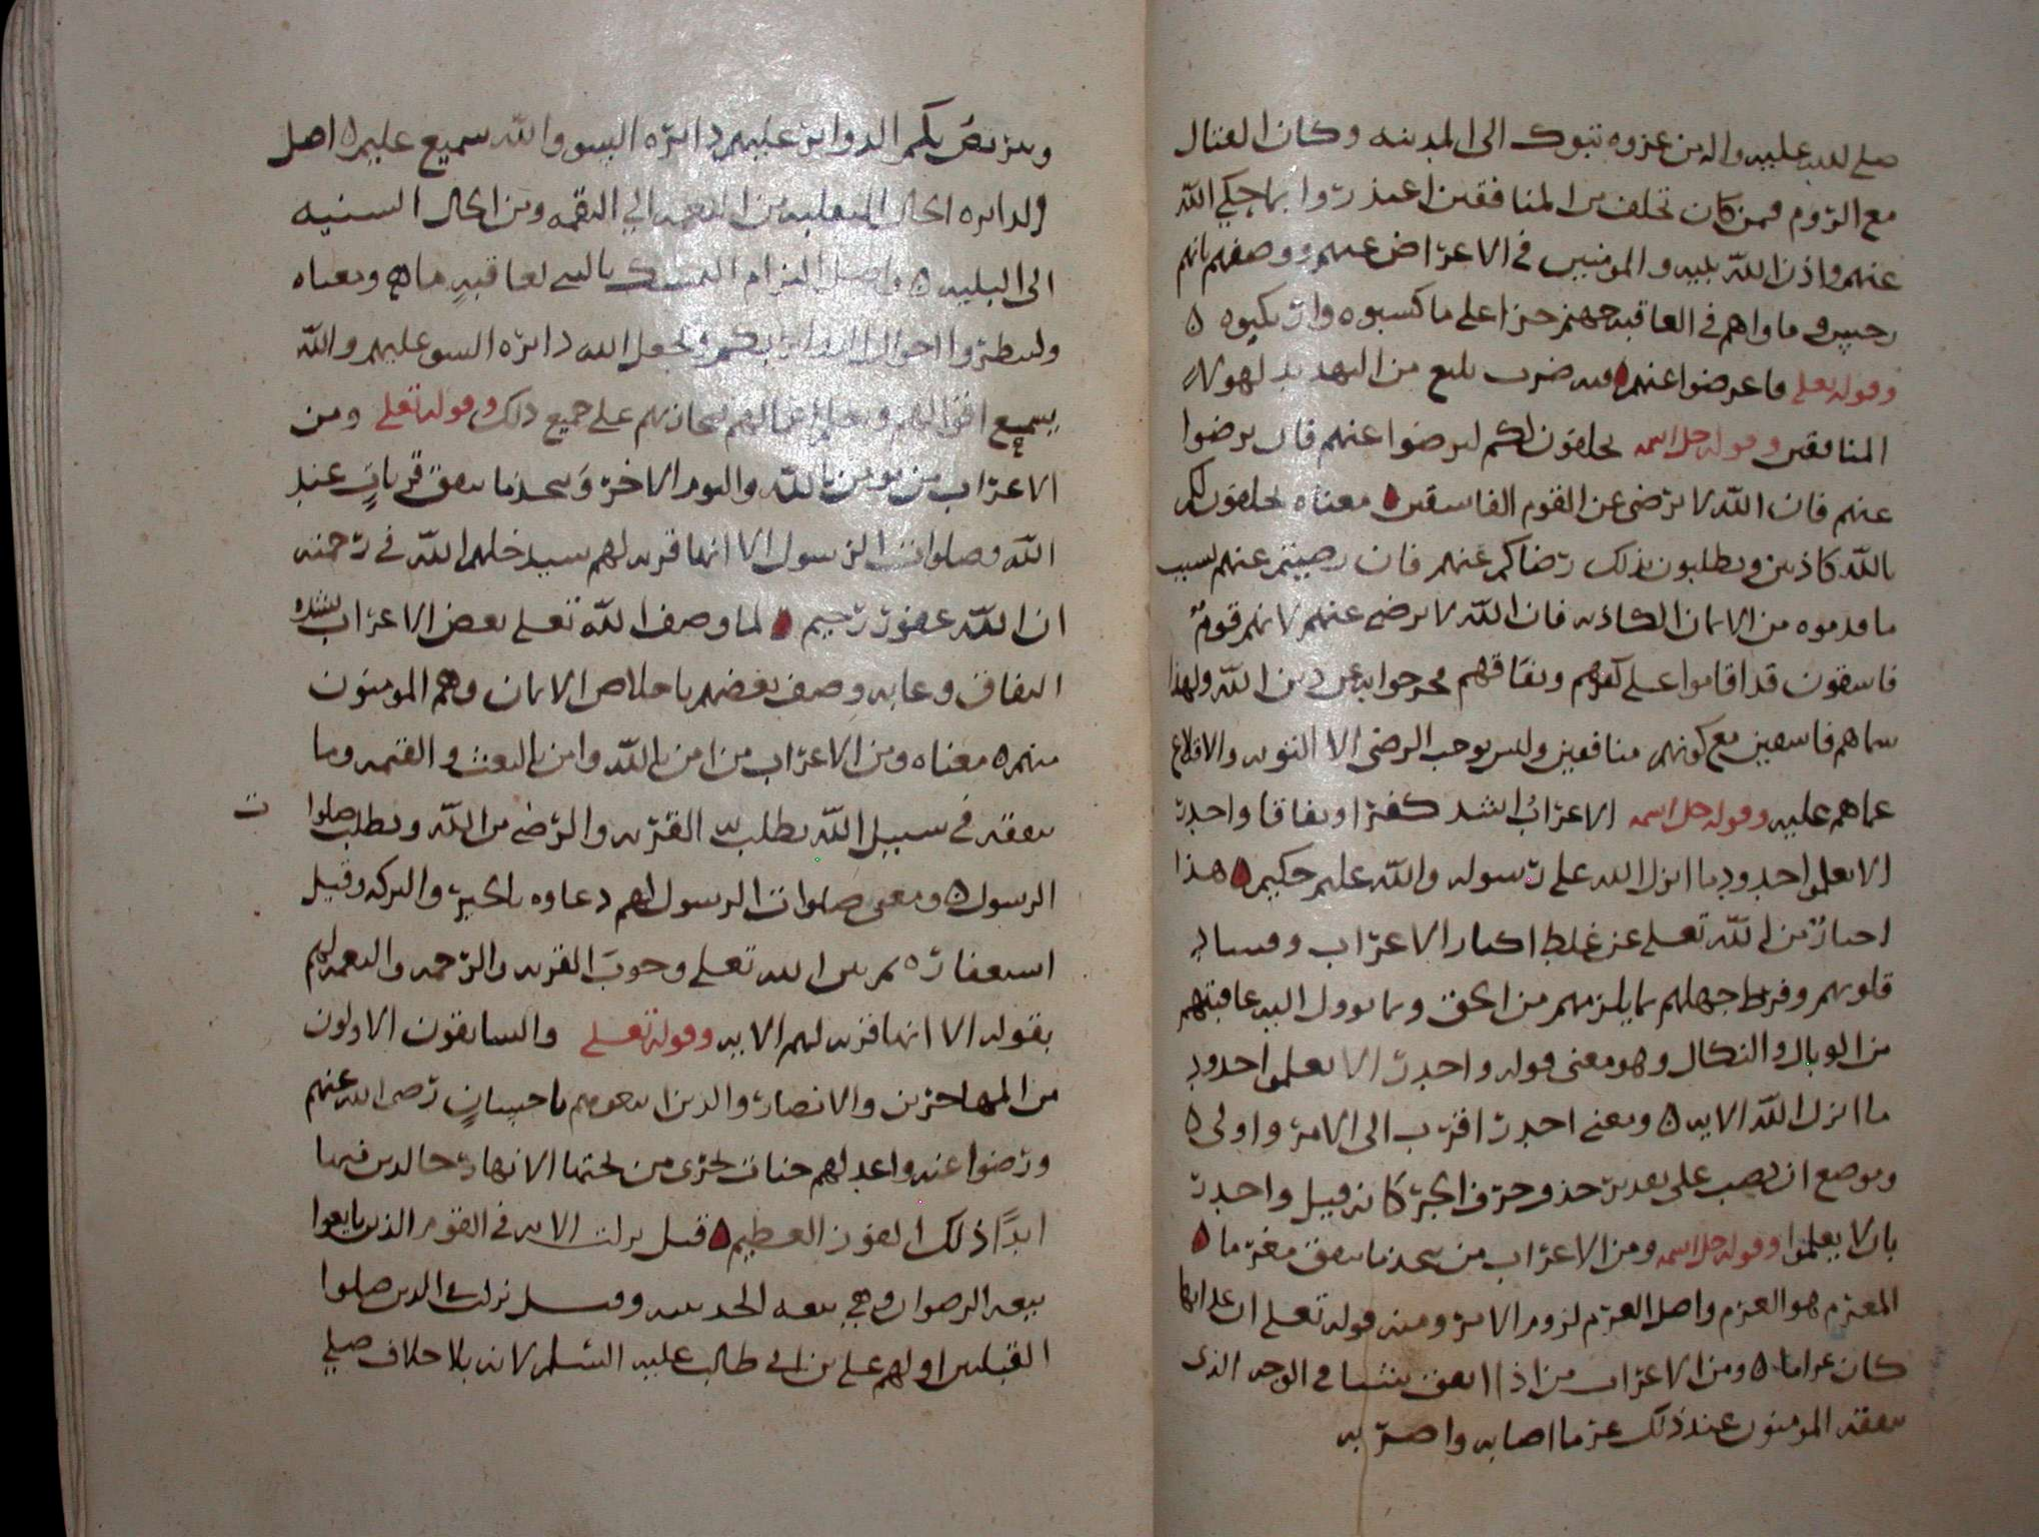 صلى الله عليه واله من غزوه تبوك الى المدينه وكان القتال
مع الروم فمن كان تخلف من المنافقين اعتذروا بما حكي الله
عنهم واذن الله نبيه والمومنين في الاعراض عنهم ووصفهم بانهم
رجس وماواهم في العاقبه جهنم جزا على ما كسبوه وارتكبوه ه
وقوله تعلى فاعرضوا عنهم فيه ضرب بليغ من التهديد لهولا
المنافقين وقوله جل اسمه يحلفون لكم لترضوا عنهم فان ترضوا
عنهم فان الله لا يرضى عن القوم الفاسقين معناه يحلفون لكم
بالله كاذبين ويطلبون بذلك رضاكم عنهم فان رضيتم عنهم لسبب
ما قدموه من الايمان الكاذبه فان الله لا يرضى عنهم لانهم قوم
فاسقون قد اقاموا على كفرهم ونفاقهم فخرجوا به عن دين الله ولهذا
سماهم فاسقين مع كونهم منافقين وليس يوجب الرضى الا التوبه والاقلاع
عما هم عليه وقوله جل اسمه الاعراب اشد كفرا ونفاقا واجدر
الا يعلموا حدود ما انزل الله على رسوله والله عليم حكيم هذا
اخبار من الله تعلى عن غلظ اكباد الاعراب وقساوه
قلوبهم وفرط جهلهم بما يلزمهم من الحق وما يوول اليه عاقبتهم
من الوبال والنكال وهو معنى قوله واجدر الا يعلموا حدود
ما انزل الله الايه ه ومعنى اجدر اقرب الى الامر واولى ه
وموضع ان نصب على تقدير حذف حرف الجر كانه قيل واجدر
بان لا يعلموا وقوله جل اسمه ومن الاعراب من يتخذ ما ينفق مغرما
المغرم هو الغرم واصل الغرم لزوم الامر ومنه قوله تعلى ان عذابها
كان غراما ه ومن الاعراب من اذا انفق شيا في الوجه الذي
ينفقه المومنون عند ذلك غرما اصابه واضر به
ويتربص بكم الدواير عليهم دائره السوء والله سميع عليم ه اصل
الدايره الحال المنقلبه من النعمه الي النقمه ومن الحال السنيه
الى البليه ه واصل التربص التمسك بالشي لعاقبه ما ه ومعناه
وينتظروا احوال الدوائر بكم ويجعل الله دائره السوء عليهم والله
يسميع اقوالهم ويعلم اعمالهم يجازيهم على جميع ذلك وقوله تعلى ومن
الاعراب من يومن بالله واليوم الاخر ويتخذ ما ينفق قربات عند
الله وصلوات الرسول الا انها قربه لهم سيدخلهم الله في رحمته
ان الله غفور رحيم لما وصف الله تعلى بعض الاعراب بشده
النفاق وعابه وصف بعضهم باخلاص الايمان وهم المومنون
منهم ه معناه ومن الاعراب من امن بالله وامن بالبعث والقيمه وما
ينفقه في سبيل الله يطلب به القربه والرضى من الله ويطلب صلوا
ت
الرسول ه ومعنى صلوات الرسول لهم دعاوه بالخير والبركه وقيل
استغفاره ثم بين الله تعلى وجوب القربه والرحمه والنعمه لهم
بقوله الا انها قربه لهم الايه وقوله تعلى والسابقون الاولون
من المهاجرين والانصار والذين اتبعوهم باحسان رضى الله عنهم
ورضوا عنه واعد لهم جنات تجرى من تحتها الانهار خالدين فيها
ابدا ذلك الفوز العظيم قيل نزلت الايه في القوم الذين بايعوا
بيعه الرضوان وهي بيعه الحديبيه وقيل نزلت في الذين صلوا
القبلتين اولهم علي بن ابي طالب عليه السلم لانه بلا خلاف صلى